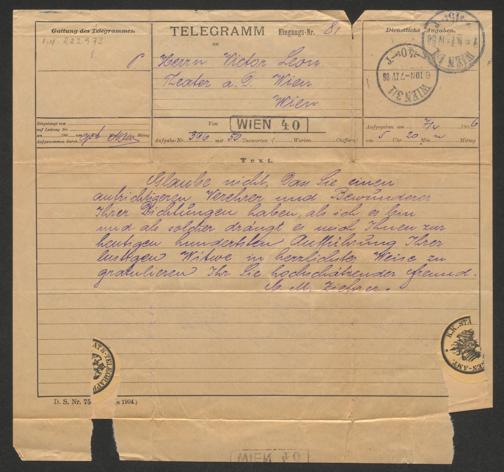 Gattung des Telegrammes.
TELEGRAMM
an
Eingangs-Nr. 81
Dienstliche Angaben.
Herrn Victor Leon
Teater a. D. Wien
Wien
WIEN 3/1
6 10N - 7 IV 06
Von
WIEN 40
Aufgabe-Nr. mit 53 Taxworten ( Worten, Chiffern)
Aufgegeben am 7/4 6
5 Uhr 20 M. Mittag
Text.
Glaube nicht, Dass Sie einen
aufrichtigeren Verehrer und Bewunderer
Ihrer Dichtungen haben, als ich es bin
und als solcher drängt es mich Ihnen zur
heutigen hundertsten Aufführung Ihrer
lustigen Witwe in herrlichster Weise zu
gratulieren Ihr Sie hochschätzender Freund.
C. M. Ziehrer.
D. S. Nr. 75
1904.)
WIEN 40